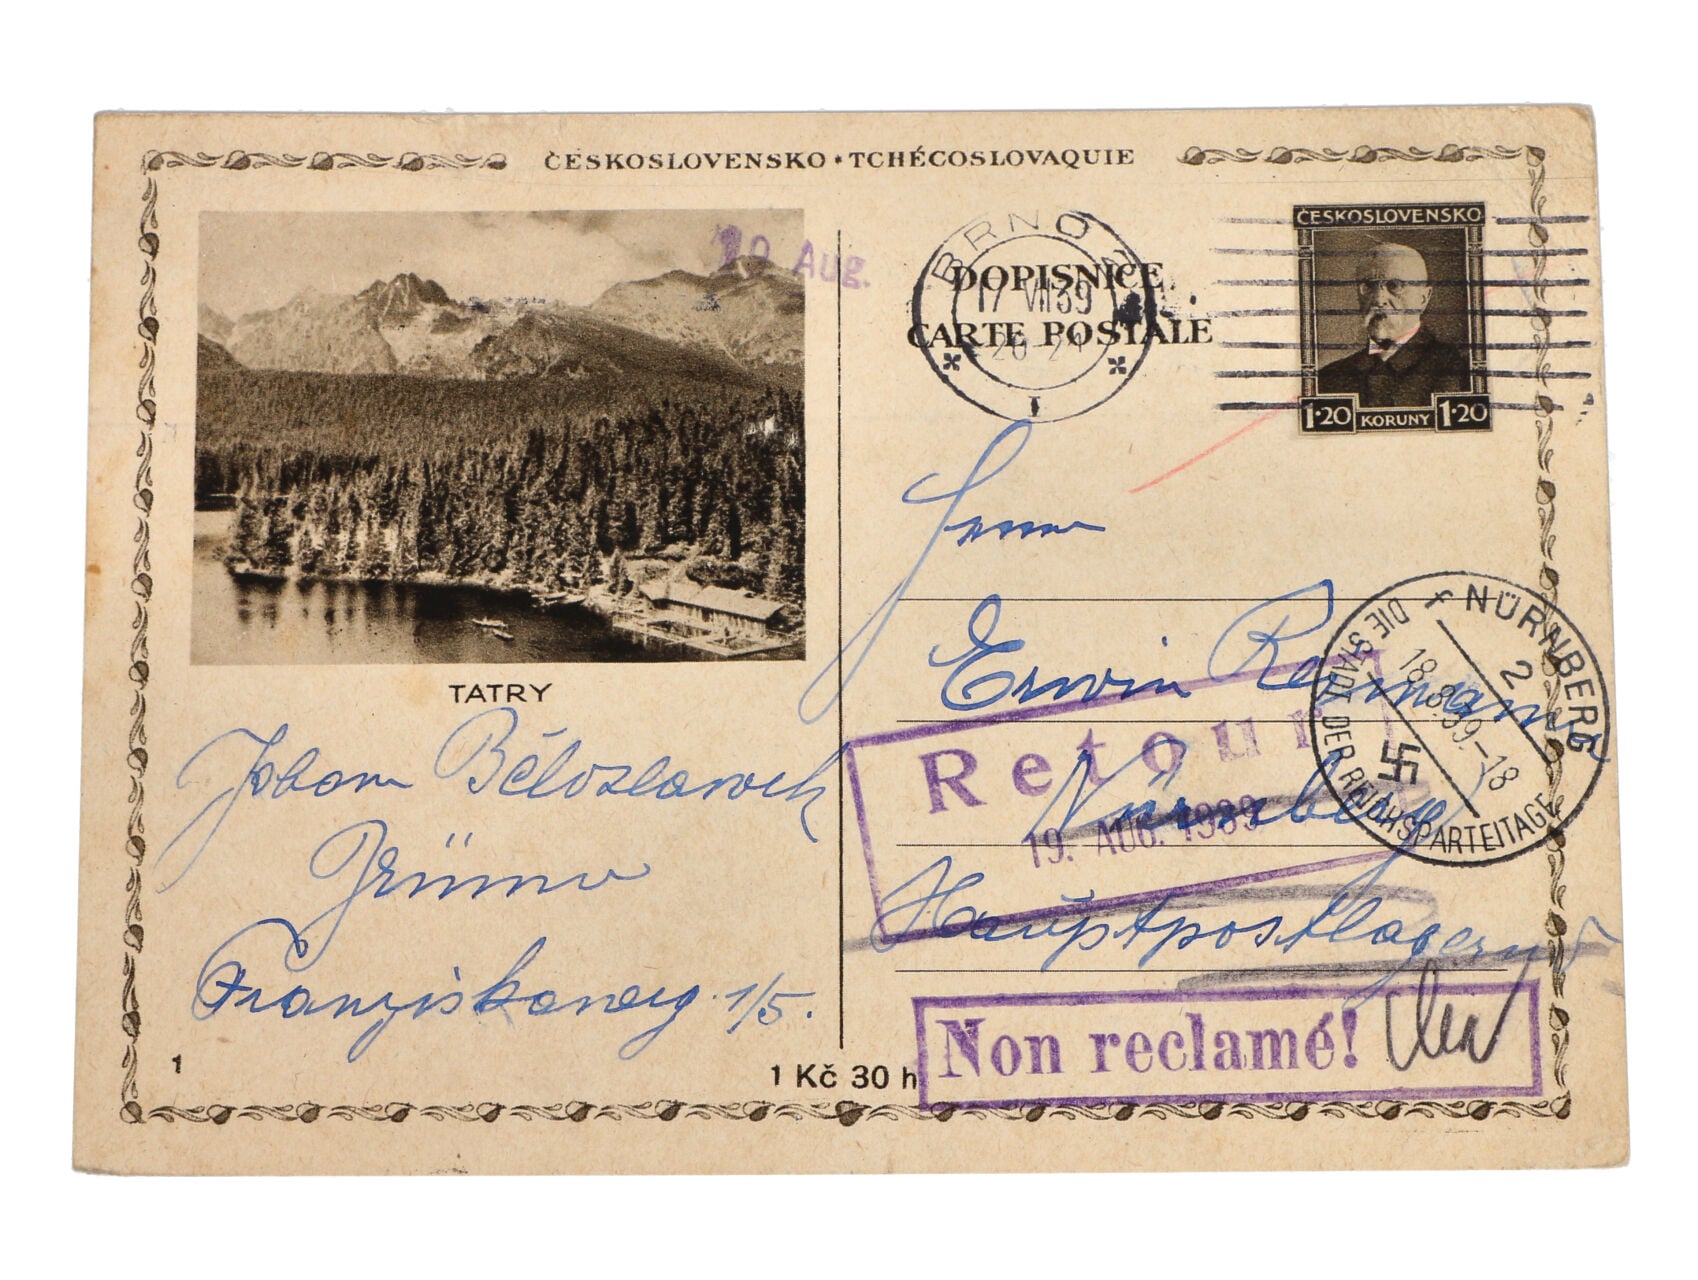 ČESKOSLOVENSKO • TCHÉCOSLOVAQUIE
20 Aug.
BRNO
17 VII 39
20-21
1
DOPISNICE
CARTE POSTALE
ČESKOSLOVENSKO
1·20 KORUNY 1·20
TATRY
Johann
Brünn
Franziskanerg. 1/5.
1
1 Kč 30 h
Herrn
Erwin
Nürnberg
Hauptpostlagernd
NÜRNBERG 2
18.8.39.-18
DIE STADT DER REICHSPARTEITAGE
Retour
19. AUG. 1939
Non reclamé!